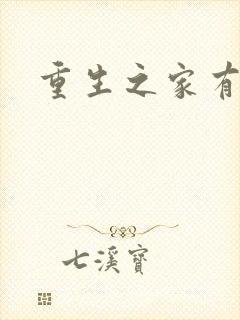 重生之家有
七溪寶